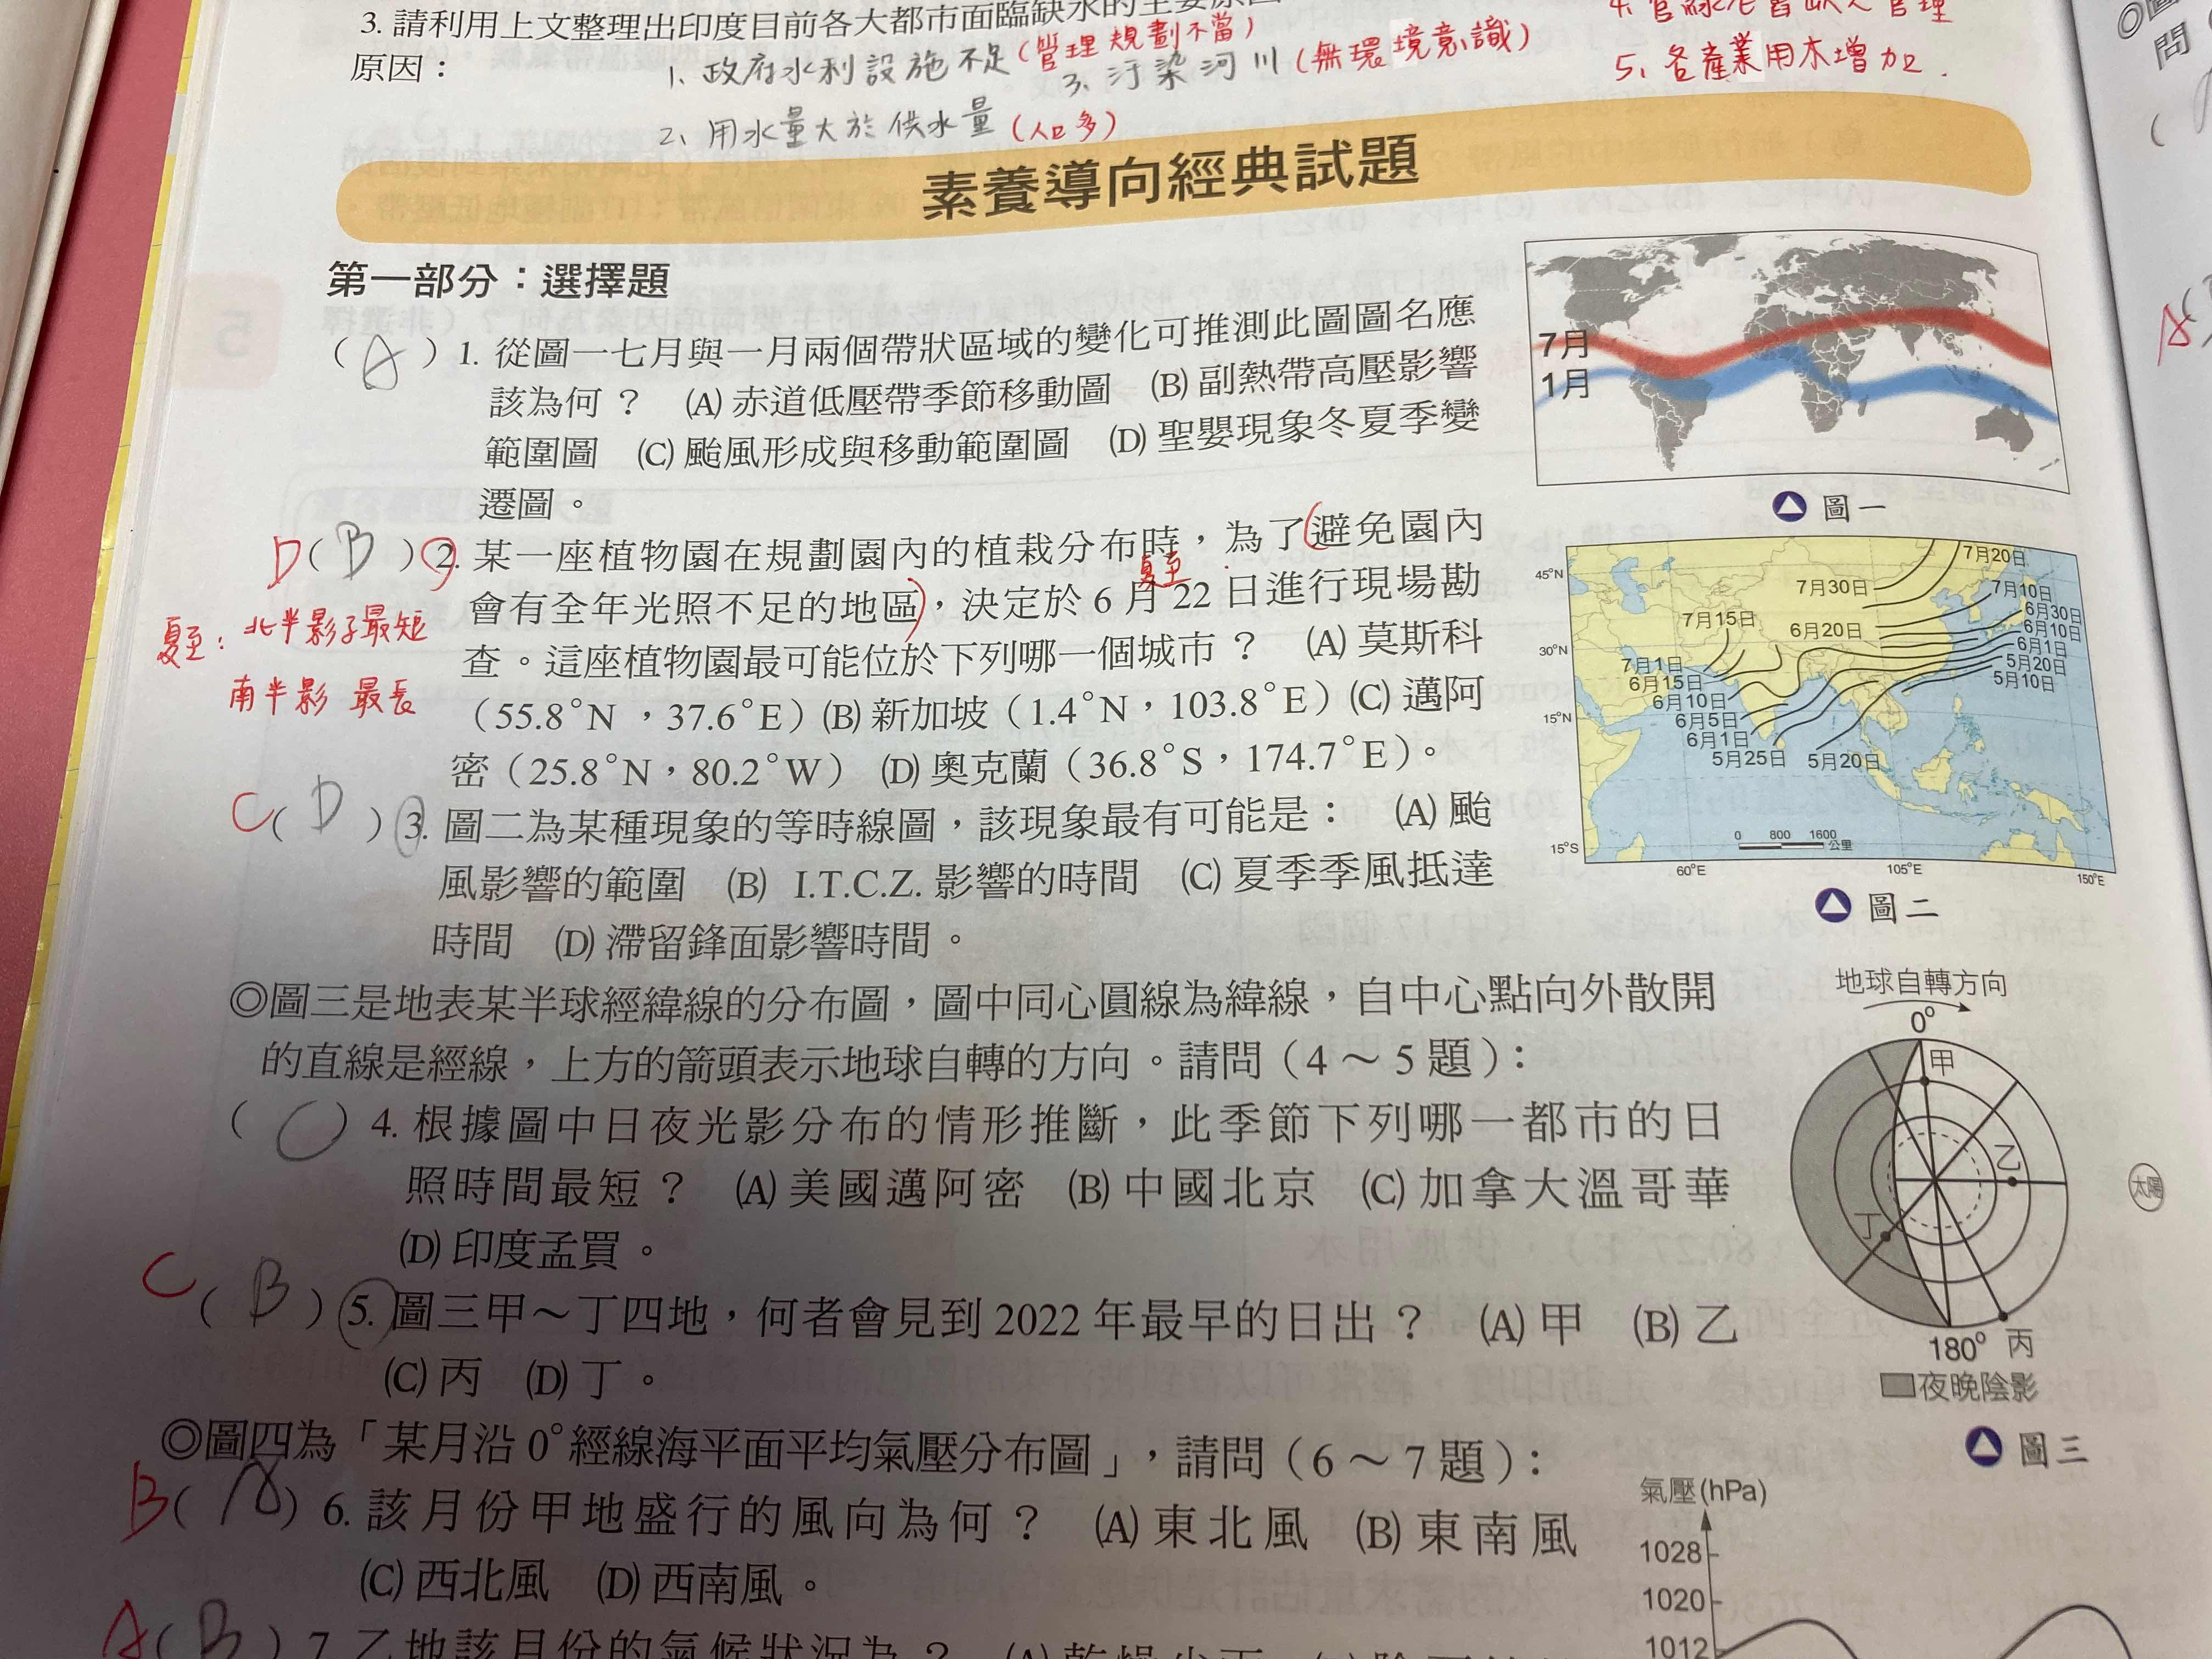 3. 請利用上文整理出印度目前各大都市面臨缺水的主要原因
原因：
1、政府水利設施不足(管理規劃不當)
3、汙染河川(無環境意識)
2、用水量大於供水量(人口多)
5、各產業用水增加.
素養導向經典試題
第一部分：選擇題
(A) 1. 從圖一七月與一月兩個帶狀區域的變化可推測此圖圖名應
該為何？ (A) 赤道低壓帶季節移動圖 (B) 副熱帶高壓影響
範圍圖 (C) 颱風形成與移動範圍圖 (D) 聖嬰現象冬夏季變
遷圖。
7月
1月
圖一
D(B) 2. 某一座植物園在規劃園內的植栽分布時，為了避免園內
夏至
會有全年光照不足的地區，決定於 6 月 22 日進行現場勘
查。這座植物園最可能位於下列哪一個城市？ (A) 莫斯科
（55.8°N，37.6°E）(B) 新加坡（1.4°N，103.8°E）(C) 邁阿
密（25.8°N，80.2°W） (D) 奧克蘭（36.8°S，174.7°E）。
夏至：北半影子最短
南半影 最長
C(D) 3. 圖二為某種現象的等時線圖，該現象最有可能是： (A) 颱
風影響的範圍 (B) I.T.C.Z. 影響的時間 (C) 夏季季風抵達
時間 (D) 滯留鋒面影響時間。
7月20日
7月30日
7月10日
6月30日
7月15日
6月20日
6月10日
6月1日
5月20日
5月10日
7月1日
6月15日
6月10日
6月5日
6月1日
5月25日
5月20日
45°N
30°N
15°N
15°S
0 800 1600
公里
60°E
105°E
150°E
圖二
◎圖三是地表某半球經緯線的分布圖，圖中同心圓線為緯線，自中心點向外散開
的直線是經線，上方的箭頭表示地球自轉的方向。請問（4～5題）：
(C) 4. 根據圖中日夜光影分布的情形推斷，此季節下列哪一都市的日
照時間最短？ (A) 美國邁阿密 (B) 中國北京 (C) 加拿大溫哥華
(D) 印度孟買。
C(B) 5. 圖三甲～丁四地，何者會見到 2022 年最早的日出？ (A) 甲 (B) 乙
(C) 丙 (D) 丁。
地球自轉方向
0°
甲
乙
丁
太陽
180°
丙
夜晚陰影
圖三
◎圖四為「某月沿 0°經線海平面平均氣壓分布圖」，請問（6～7題）：
B(A) 6. 該月份甲地盛行的風向為何？ (A) 東北風 (B) 東南風
(C) 西北風 (D) 西南風。
A(B) 7. 乙地該月份的氣候狀況為？
氣壓(hPa)
1028
1020
1012
問